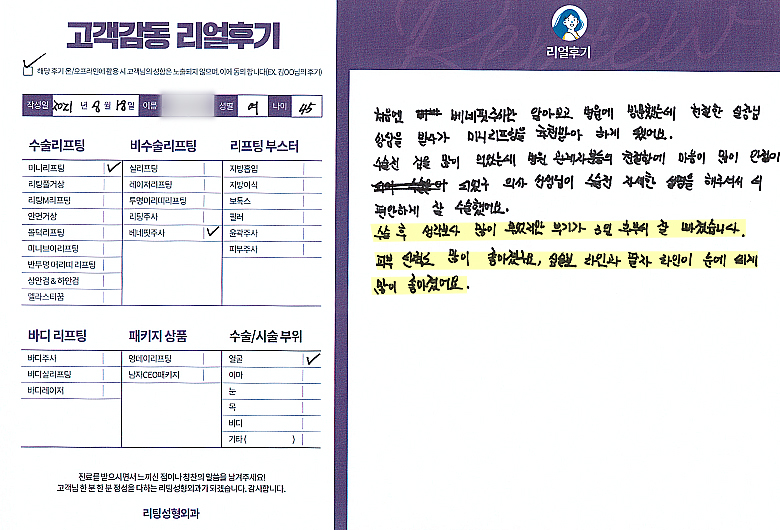 고객감동 리얼후기
해당 후기 온/오프라인에 활용 시 고객님의 성함은 노출되지 않으며, 이에 동의 합니다(EX. 김OO님의 후기)
작성일 2021 년 8 월 18 일 이름 성별 여 나이 45
수술리프팅 비수술리프팅 리프팅 부스터
미니리프팅 실리프팅 지방흡입
리팅풀거상 레이저리프팅 지방이식
리팅M리프팅 투명이리띠리프팅 보톡스
안면거상 리팅주사 필러
몽떡리프팅 베네핏주사 윤곽주사
미니브이리프팅 피부주사
반투명 이리띠 리프팅
상안검 & 하안검
엘라스티꿈
바디 리프팅 패키지 상품 수술/시술 부위
바디주사 명네이리프팅 얼굴
바디실리프팅 남자CEO패키지 이마
바디레이저 눈
목
바디
기타( )
진료를 받으시면서 느끼신 점이나 칭찬의 말씀을 남겨주세요!
고객님 한 분 한 분 정성을 다하는 리팅성형외과가 되겠습니다. 감사합니다.
리팅성형외과
Review
리얼후기
처음엔 베네핏주사만 알아보고 병원에 방문했는데 친절한 실장님
상담을 받다가 미니리프팅을 추천받아 하게 됐어요.
수술전 겁을 많이 먹었는데 병원 관계자분들의 친절함에 마음이 많이 안정이
되었구 의사 선생님이 수술전 자세한 설명을 해주셔서 더
편안하게 잘 수술했어요.
수술 후 생각보다 많이 부었지만 붓기가 3일 후부터 잘 빠졌습니다.
피부 탄력도 많이 좋아졌구요, 심술보 라인과 팔자 라인이 눈에 띄게
많이 좋아졌어요.